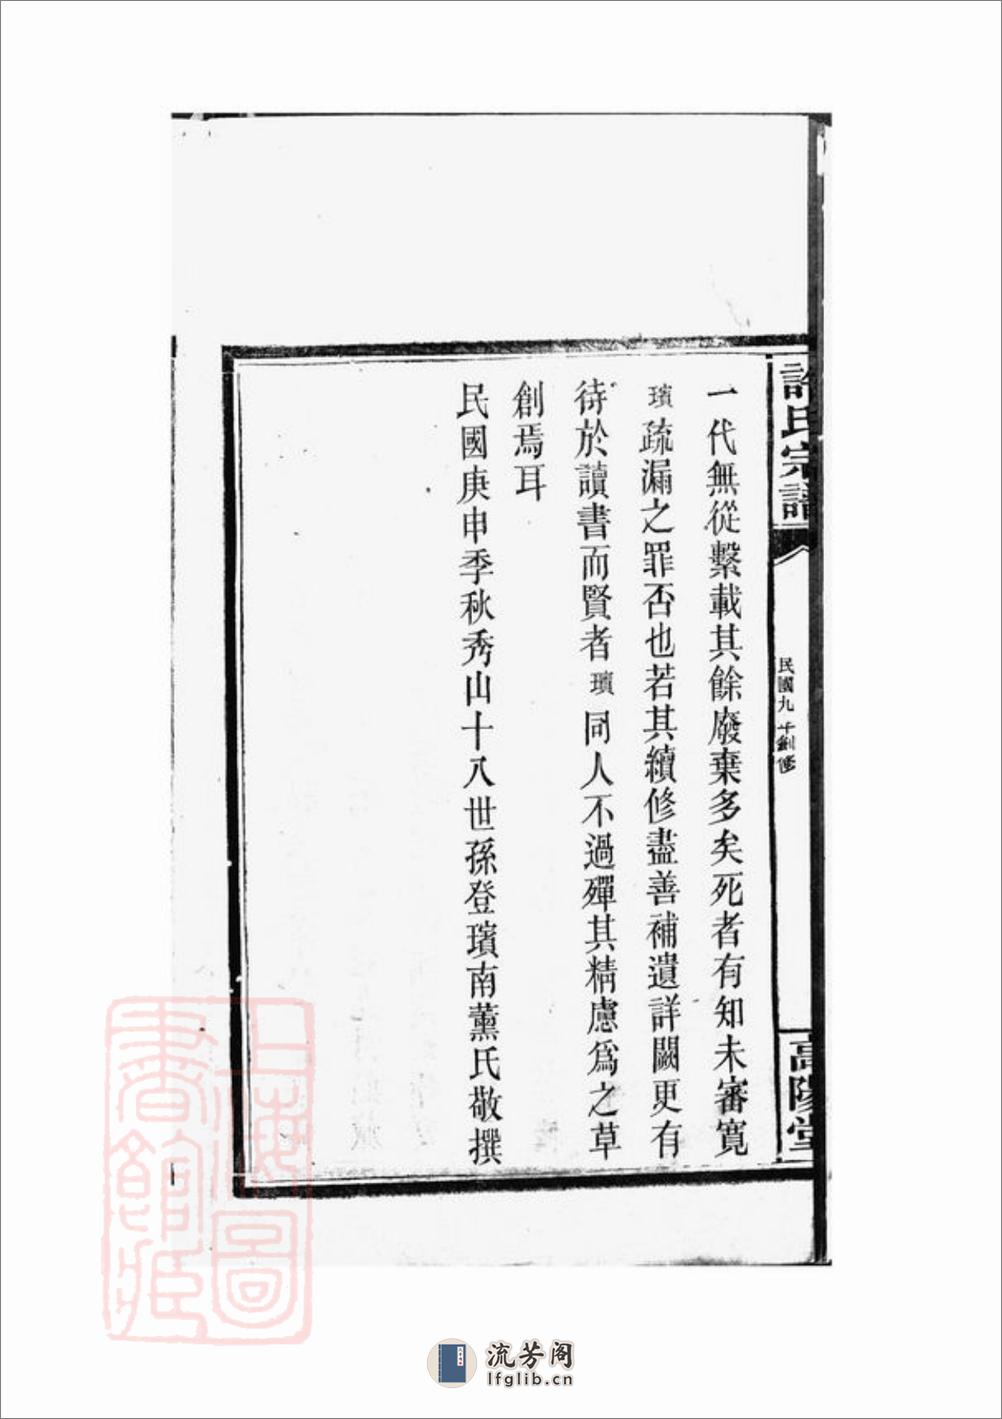 許氏宗譜
民國九年創修
高陽堂
一代無從繫載其餘廢棄多矣死者有知未審寬
璸疏漏之罪否也若其續修盡善補遺詳闕更有
待於讀書而賢者璸同人不過殫其精慮為之草
創焉耳
民國庚申季秋秀山十八世孫登璸南薰氏敬撰
上海圖
書館藏
流芳阁
lfglib.cn